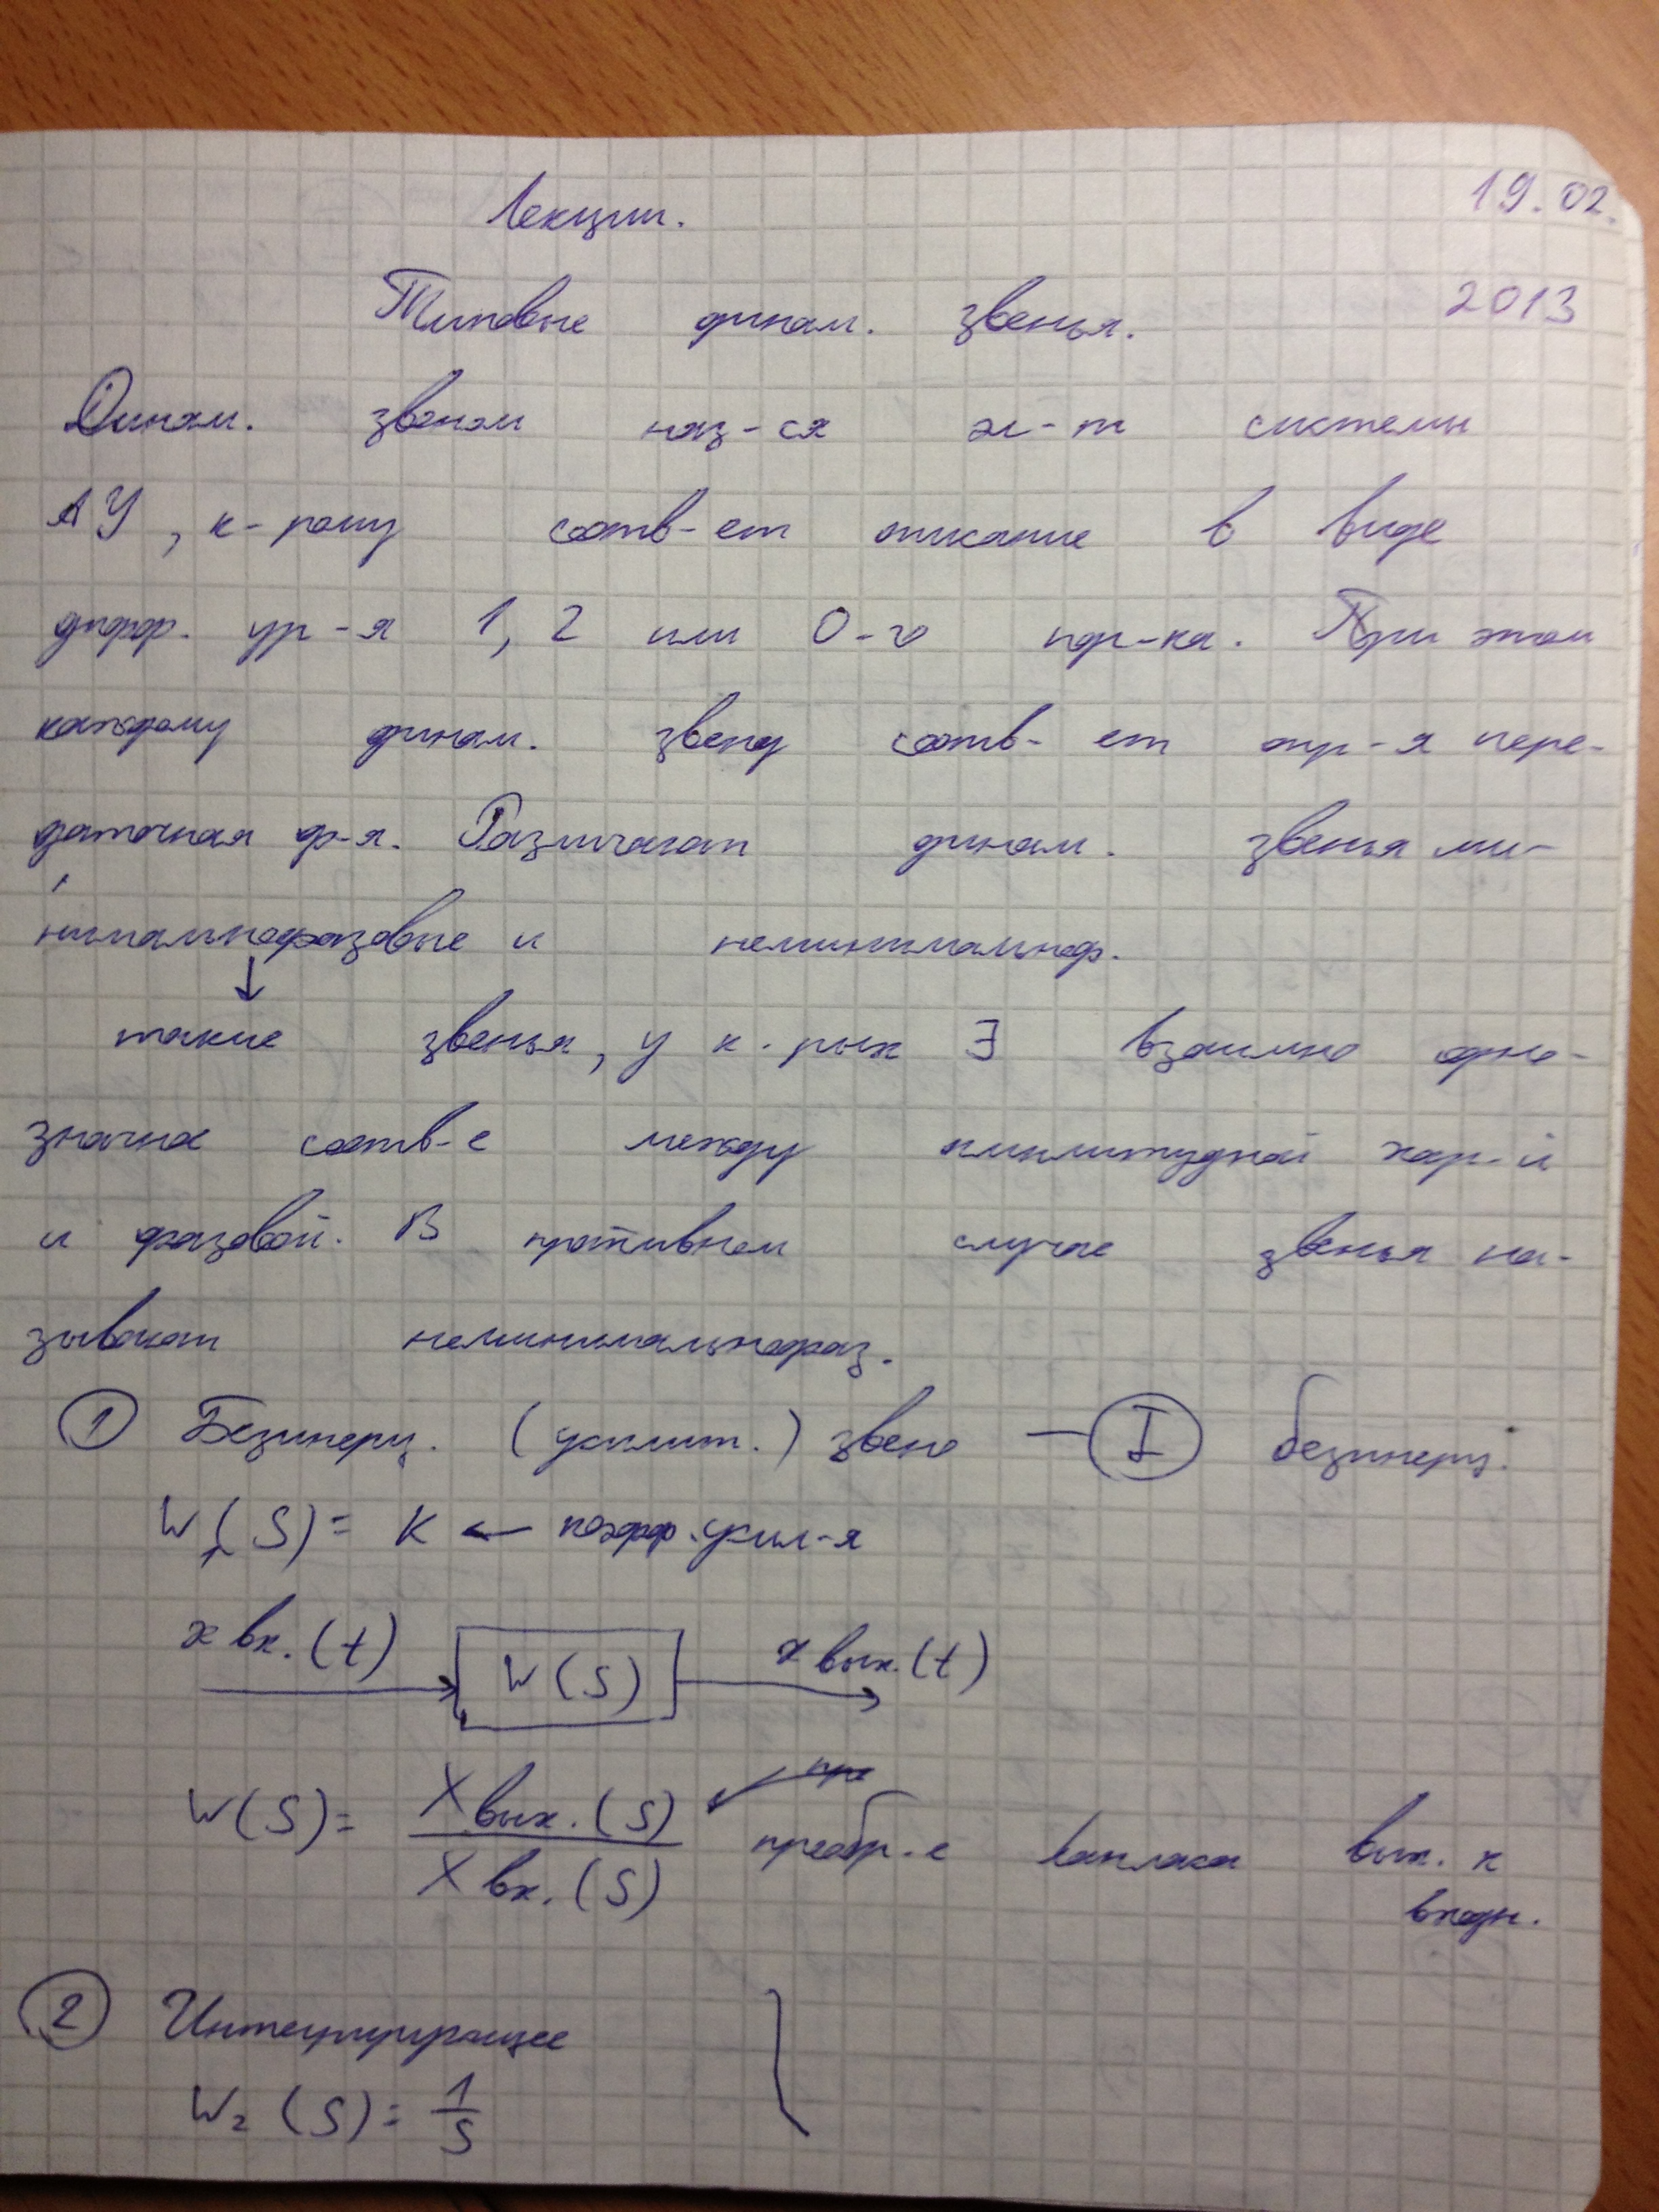 Лекции.
19.02.
2013
Типовые динам. звенья.
Динам. звеном наз-ся эл-т системы
АУ, к-рому соотв-ет описание в виде
дифф. ур-я 1, 2 или 0-го пор-ка. При этом
каждому динам. звену соотв-ет опр-я пере-
даточная ф-я. Различают динам. звенья ми-
нимальнофазовые и неминимальноф.
такие звенья, у к-рых ∃ взаимно одно-
значное соотв-е между амплитудной хар-й
и фазовой. В противном случае звенья на-
зывают неминимальнофаз.
① Безинерц. (усилит.) звено — Ⅰ безинерц.
W₁(S) = K ← коэфф. усил-я
x вх.(t) W(S) x вых.(t)
W(S) = X вых.(S) / X вх.(S) преобр-е Лапласа вых. к
входн.
② Интегрирующее
W₂(S) = 1/S